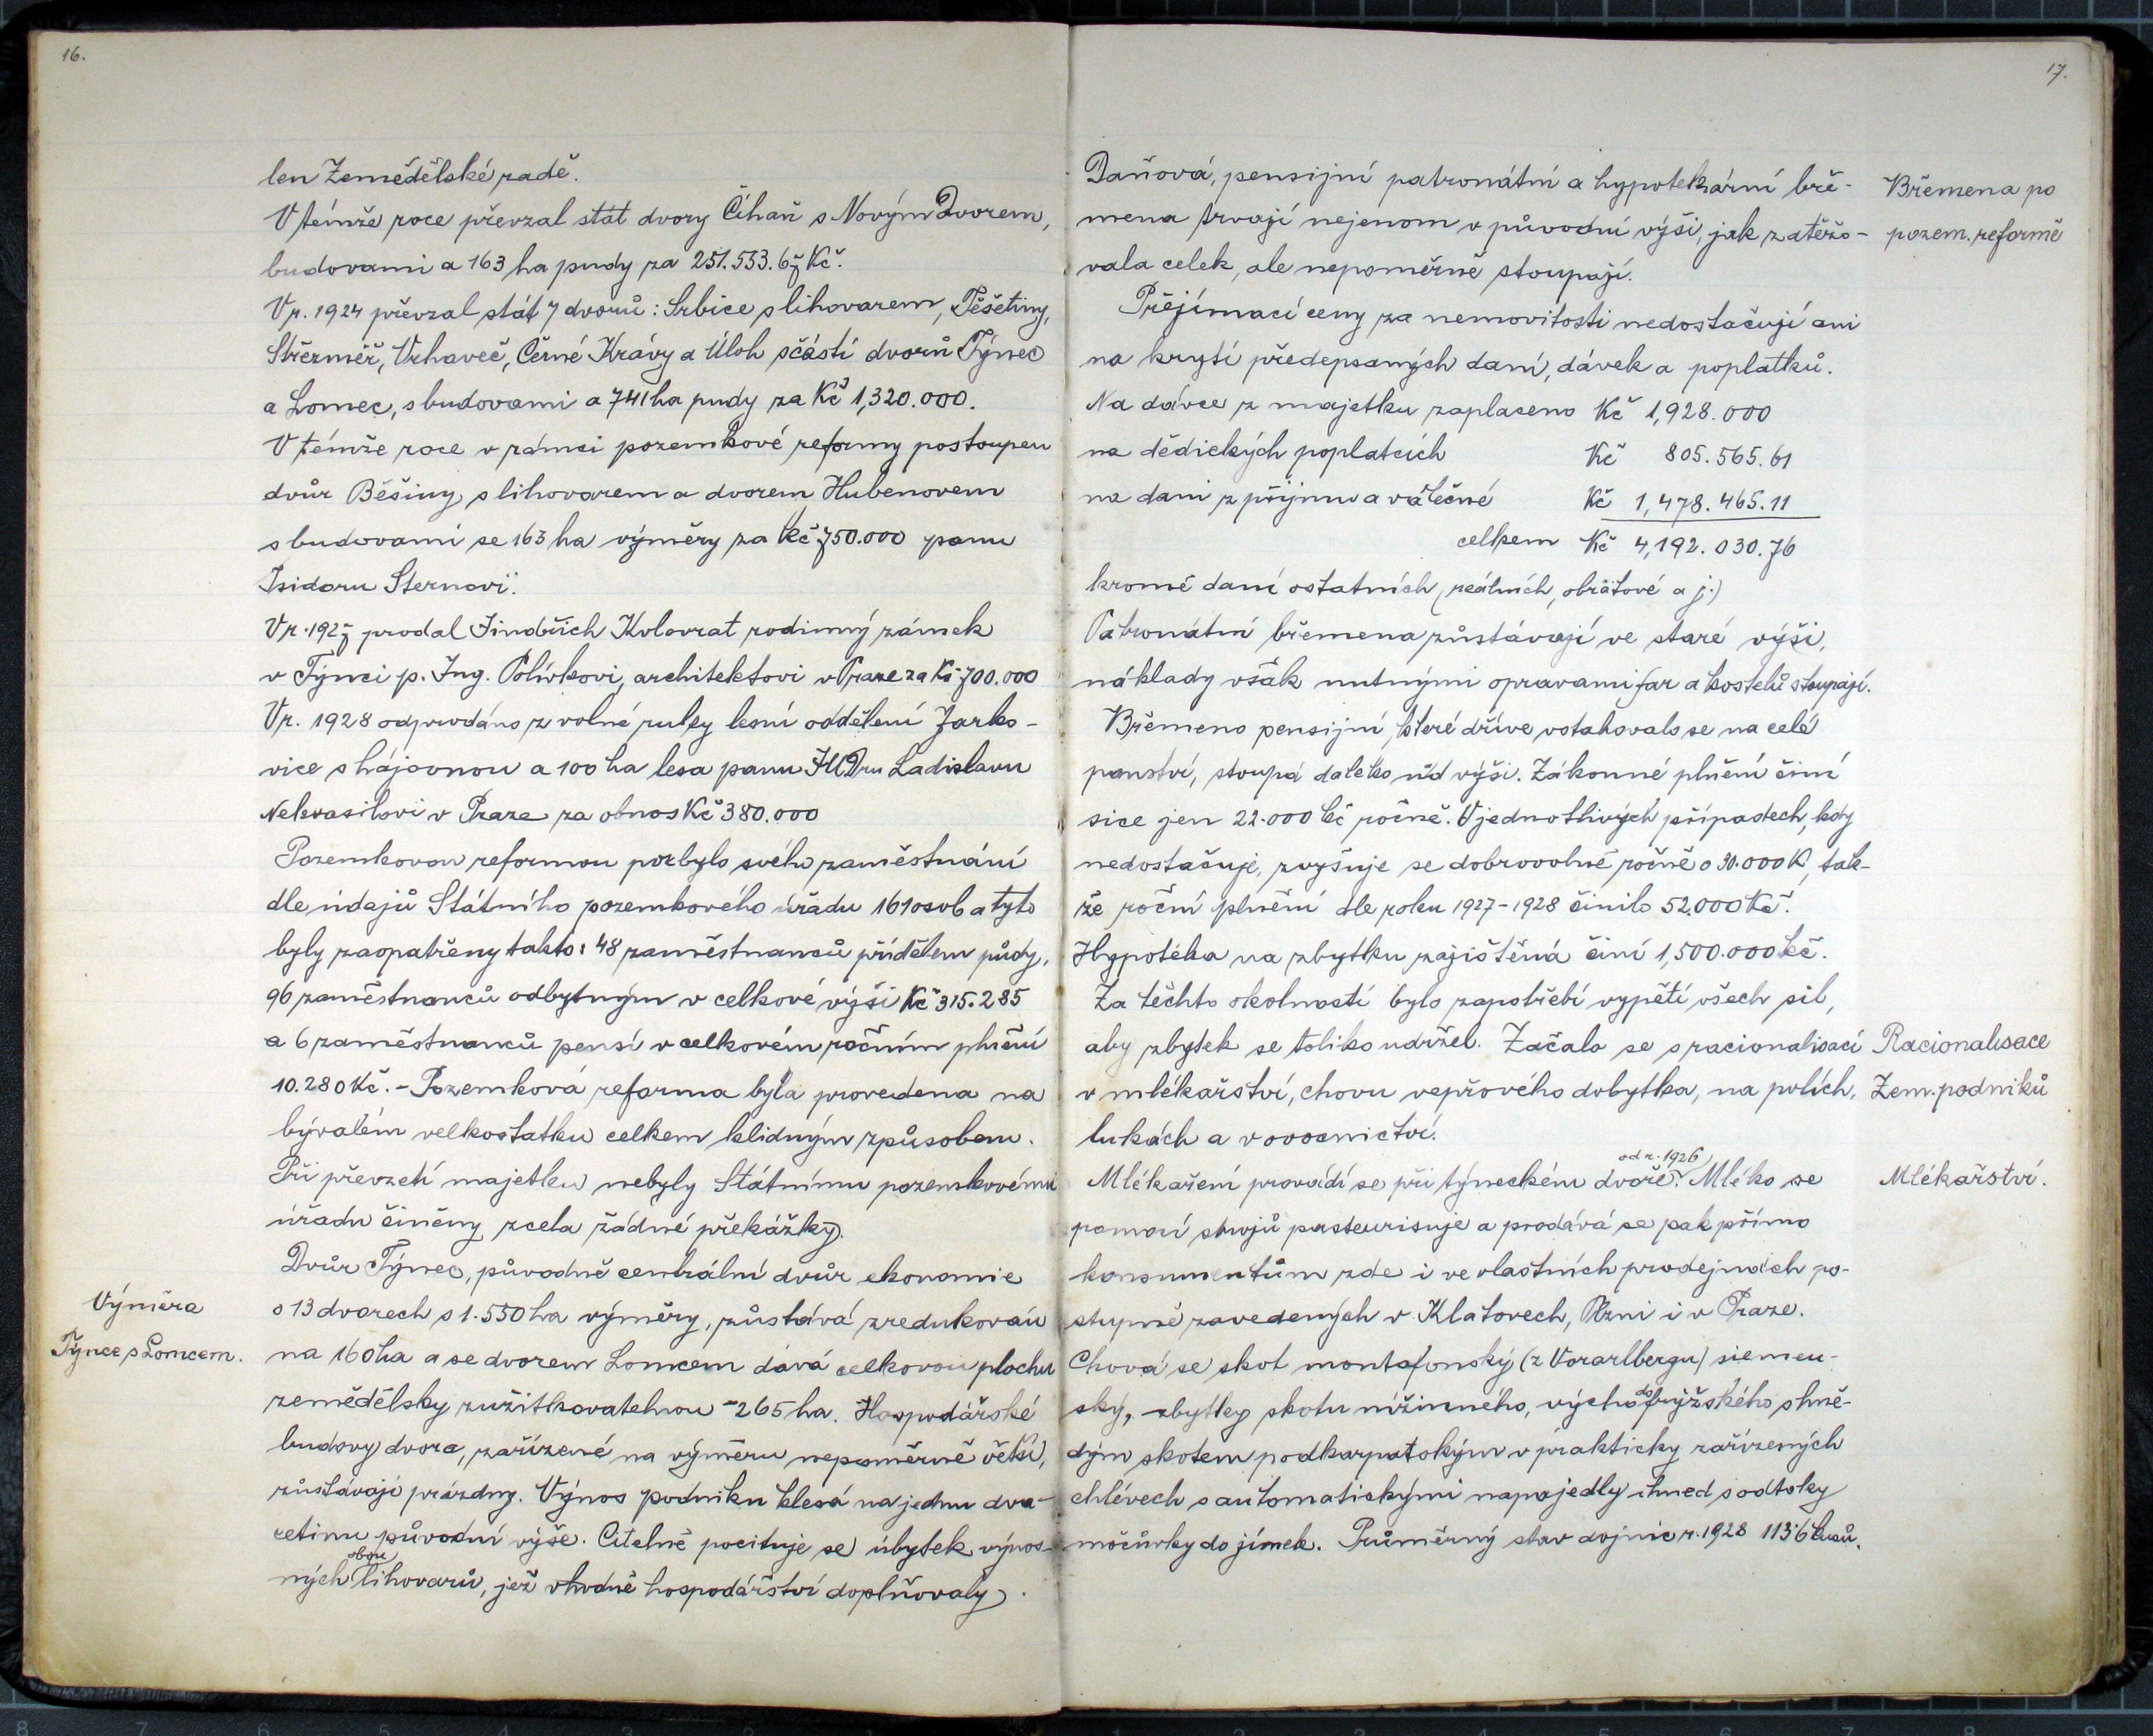 16.
len Zemědělské radě.
V témže roce převzal stát dvory Číhaň s Novým Dvorem,
budovami a 163 ha pudy za 251.533.67 Kč.
V r. 1924 převzal stát 7 dvorů: Srbice s lihovarem, Těšetiny,
Střezměř, Vrhaveč, Černé Krávy a Úloh sčástí dvorů Týnec
a Lomec, s budovami a 741 ha pudy za Kč 1,320.000.
V témže roce v rámci pozemkové reformy postoupen
dvůr Běšiny s lihovarem a dvorem Hubenovem
s budovami se 163 ha výměry za Kč 750.000 panu
Isidoru Sternovi.
V r. 1927 prodal Jindřich Kolovrat rodinný zámek
v Týnci p. Ing. Polívkovi, architektovi v Praze za Kč 700.000
V r. 1928 odprodáno z volné ruky lesní oddělení Žarko-
vice s hájovnou a 100 ha lesa panu JUDru Ladislavu
Nekvasilovi v Praze za obnos Kč 380.000
Pozemkovou reformou pozbylo svého zaměstnání
dle údajů Státního pozemkového úřadu 161 osob a tyto
byly zaopatřeny takto: 48 zaměstnanců přídělem půdy,
96 zaměstnanců odbytným v celkové výši Kč 315.285
a 6 zaměstnanců pensí v celkovém ročním plnění
10.280 Kč. - Pozemková reforma byla provedena na
bývalém velkostatku celkem klidným způsobem.
Při převzetí majetku nebyly Státnímu pozemkovému
úřadu činěny zcela žádné překážky.
Dvůr Týnec, původně centrální dvůr ekonomie
Výměra
o 13 dvorech s 1.550 ha výměry, zůstává zredukován
Týnce s Lomcem.
na 160 ha a se dvorem Lomcem dává celkovou plochu
zemědělsky zužitkovatelnou - 265 ha. Hospodářské
budovy dvora, zařízené na výměru nepoměrně větší,
zůstávají prázdny. Výnos podniku klesá na jednu dva-
cetinu původní výše. Citelně pociťuje se úbytek výnos-
ných obou lihovarů, jež vhodně hospodářství doplňovaly.
17.
Daňová, pensijní patronátní a hypotekární bře-
Břemena po
mena trvají nejenom v původní výši, jak zatěžo-
pozem. reformě
vala celek, ale nepoměrně stoupají.
Přejímací ceny za nemovitosti nedostačují ani
na krytí předepsaných daní, dávek a poplatků.
Na dávce z majetku zaplaceno Kč 1,928.000
na dědických poplatcích Kč 805.565.61
na dani z příjmu a válečné Kč 1,478.465.11
celkem Kč 4,192.030.76
kromě daní ostatních (reálních, obrátové a j.)
Patronátní břemena zůstávají ve staré výši,
náklady však nutnými opravami far a kostelů stoupají.
Břemeno pensijní, které dříve vztahovalo se na celé
panství, stoupá daleko nad výši. Zákonné plnění činí
sice jen 22.000 Kč ročně. V jednotlivých případech, kdy
nedostačuje, zvyšuje se dobrovolně ročně o 30.000 K, tak-
že roční plnění dle roku 1927-1928 činilo 52.000 Kč.
Hypotéka na zbytku zajištěná činí 1,500.000 Kč.
Za těchto okolností bylo zapotřebí vypětí všech sil,
aby zbytek se toliko udržel. Začalo se s racionalisací
Racionalisace
v mlékařství, chovu vepřového dobytka, na polích,
Zem. podniků
lukách a v ovocnictví.
Mlékaření provádí se při týneckém dvoře od r. 1926. Mléko se
Mlékařství.
pomocí strojů pasteurisuje a prodává se pak přímo
konsumentům zde i ve vlastních prodejnách po-
stupně zavedených v Klatovech, Plzni i v Praze.
Chová se skot montafonský (z Vorarlbergu) siemen-
ský, zbytky skotu nížinného, východofrýžského s hně-
dým skotem podkarpatským v prakticky zařízených
chlévech s automatickými napajedly ihned s odtoky
močůvky do jímek. Průměrný stav dojnic r. 1928 113·6 kusů.